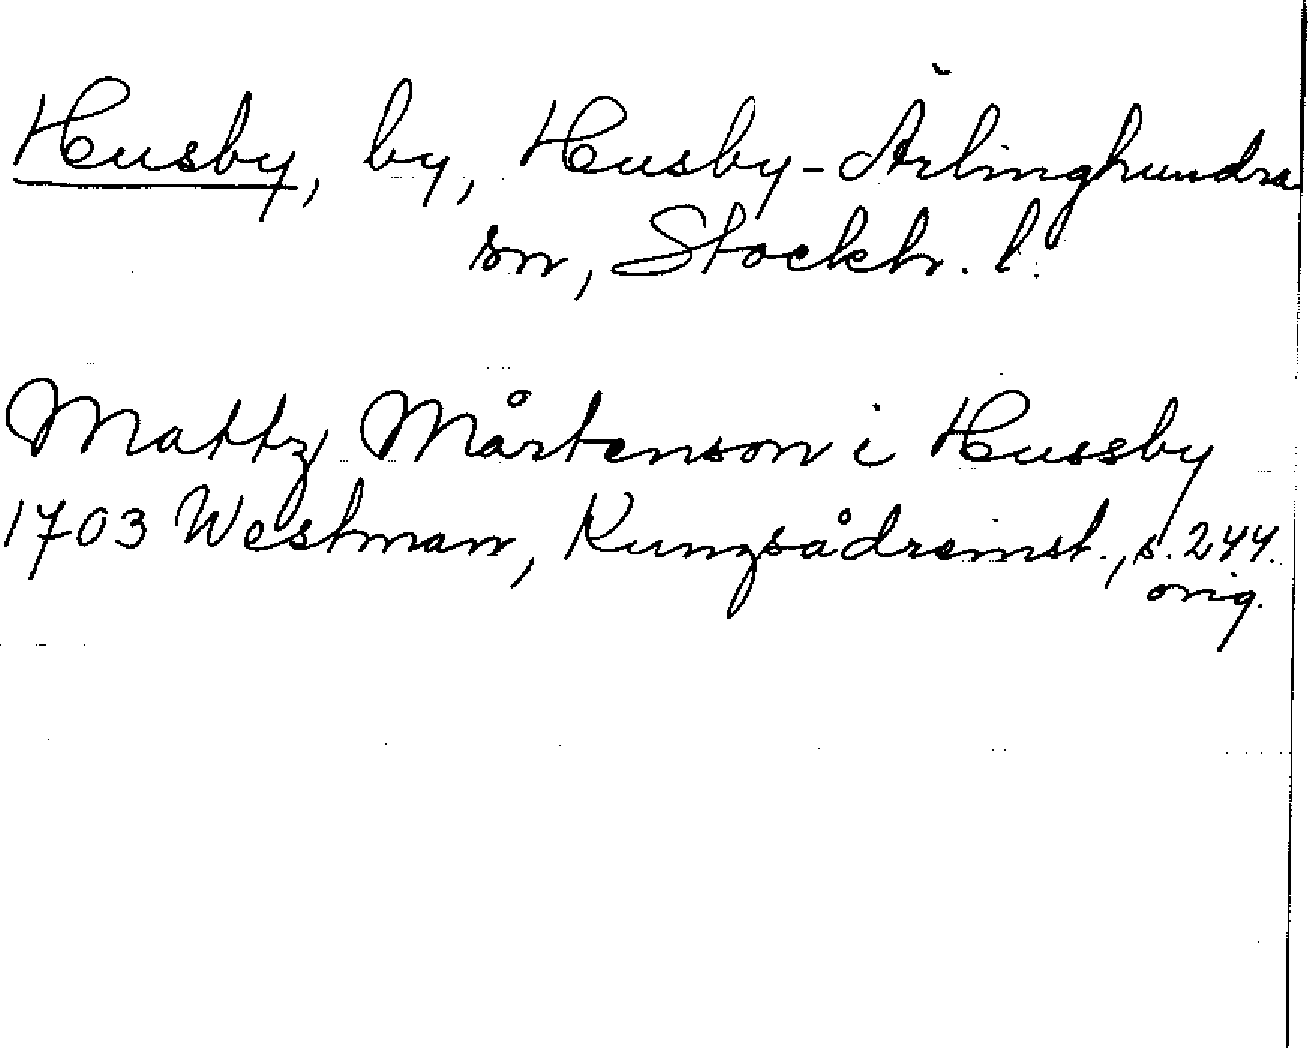 Husby, by, Husby-Ärlinghundra
sn, Stockh. l.
Mattz Mårtenson i Hussby
1703 Westman, Kungsådreinst., s. 244.
orig.